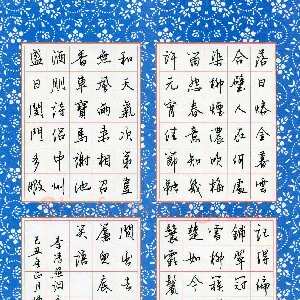 落日熔金暮雲
合璧人在何處
染柳煙濃吹梅
笛怨春意知幾
許元宵佳節融
和天氣次第豈
無風雨來相召
香車寶馬謝他
酒朋詩侶中州
盛日閨門多暇
記得偏
鋪翠冠
雪柳簇
楚如今
鬟霜鬢
間出去
簾兒底
笑語
李清照詞
己丑年正月